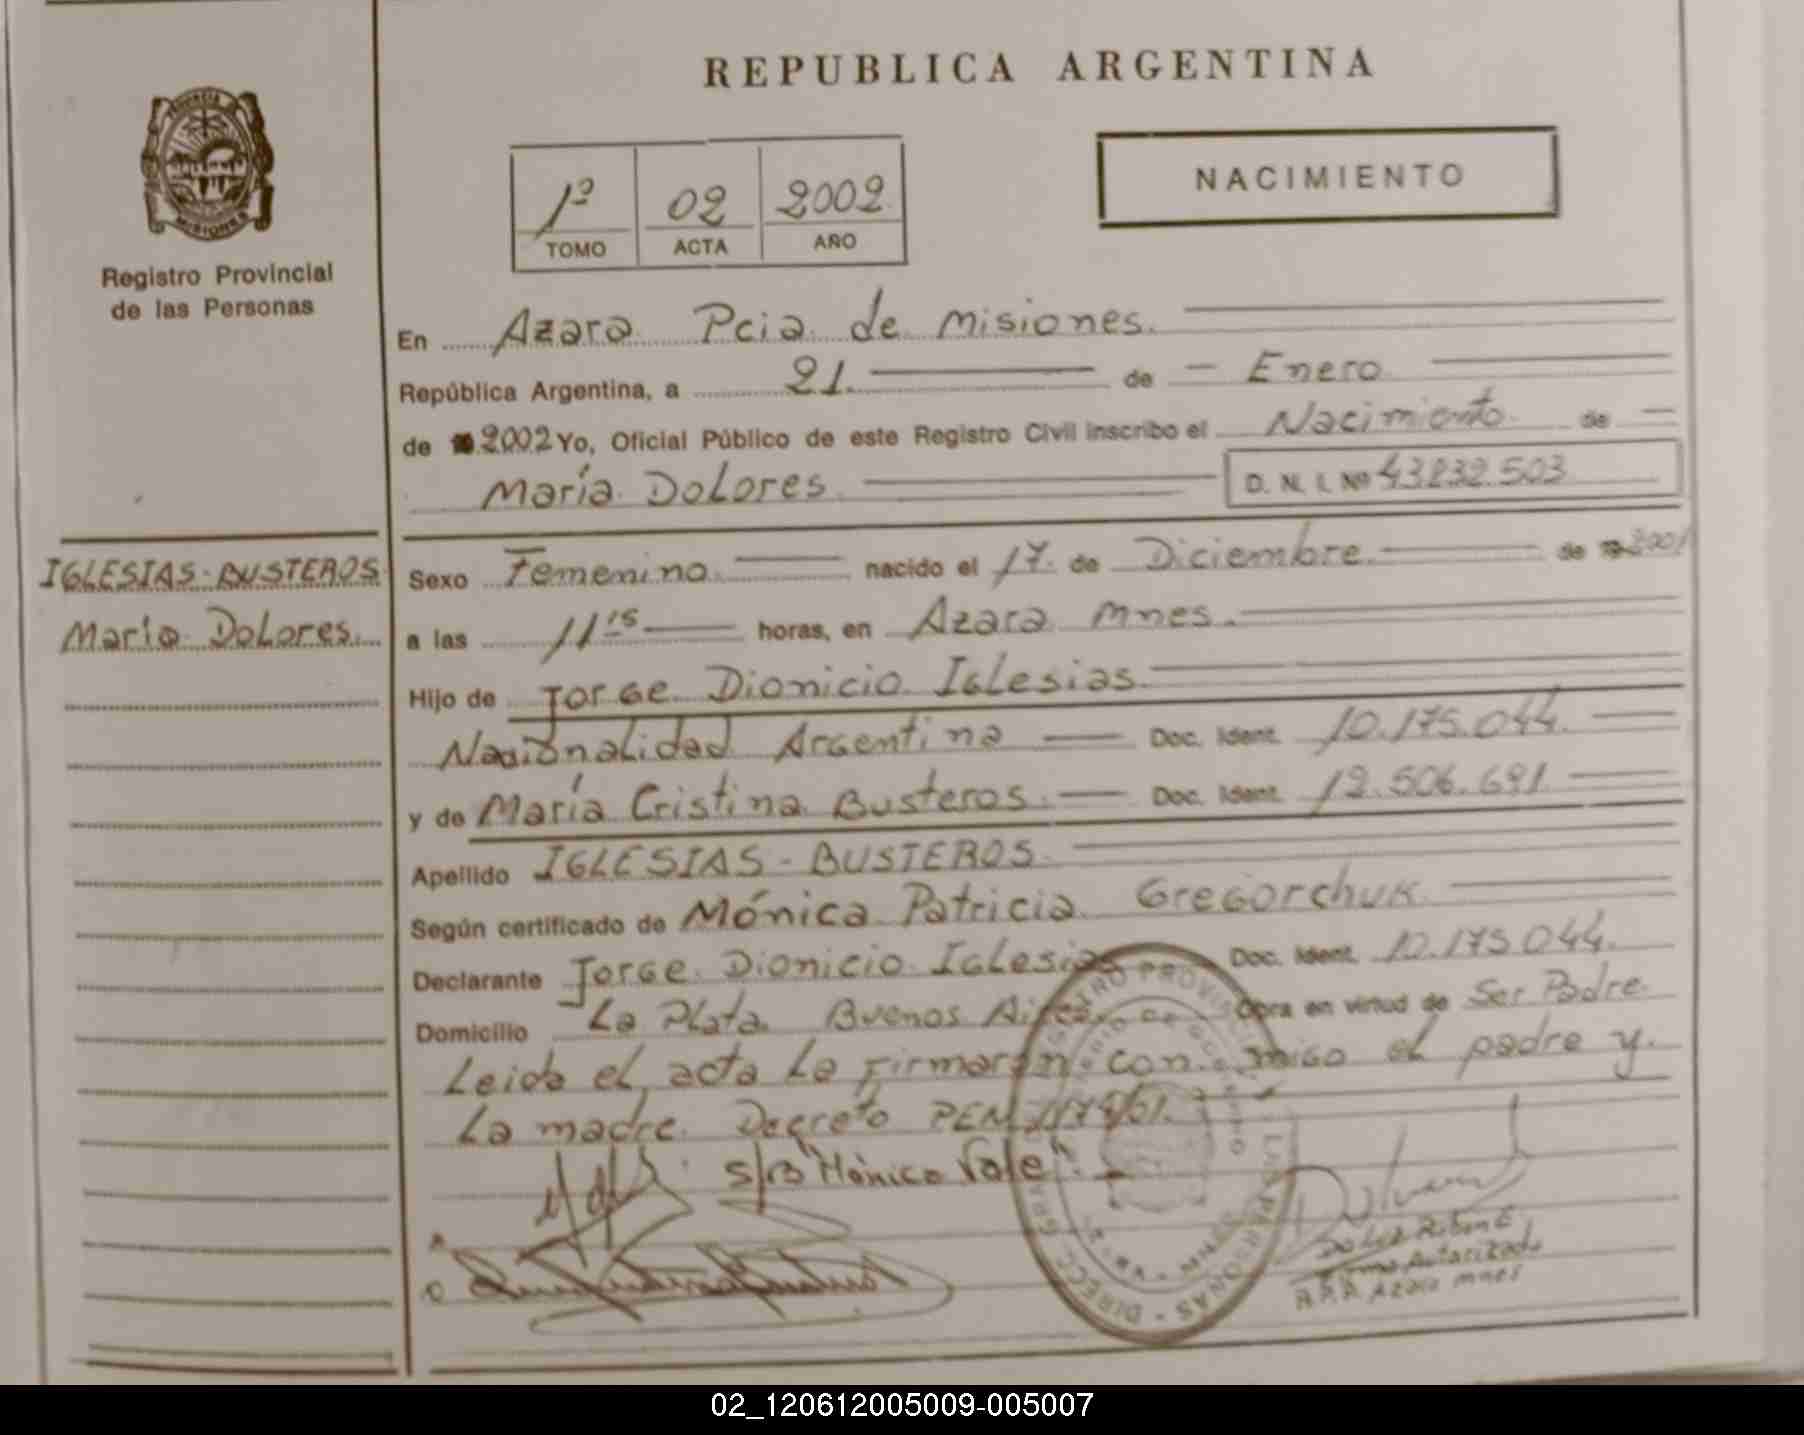 REPUBLICA ARGENTINA
PROVINCIA DE
MISIONES
Registro Provincial
de las Personas
1º 02 2002
TOMO ACTA AÑO
NACIMIENTO
En Azara Pcia de Misiones.
República Argentina, a 21. de Enero
de 2002 Yo, Oficial Público de este Registro Civil inscribo el Nacimiento de
María Dolores D. N. I. Nº 43.232.503
IGLESIAS-BUSTEROS
María Dolores
Sexo Femenino nacido el 17 de Diciembre de 2001
a las 11 15 horas, en Azara Mnes.
Hijo de Jorge Dionicio Iglesias.
Nacionalidad Argentina Doc. Ident. 10.175.044.
y de María Cristina Busteros. Doc. Ident. 12.506.691
Apellido IGLESIAS-BUSTEROS
Según certificado de Mónica Patricia Gregorchuk
Declarante Jorge Dionicio Iglesias Doc. Ident. 10.175.044.
Domicilio La Plata Buenos Aires. Obra en virtud de Ser Padre.
Leida el acta la Firmaran con migo el padre y
La madre. Decreto PEN
S/B "Mónica Vale".
Firma Autorizada
Azara Mnes
02_120612005009-005007